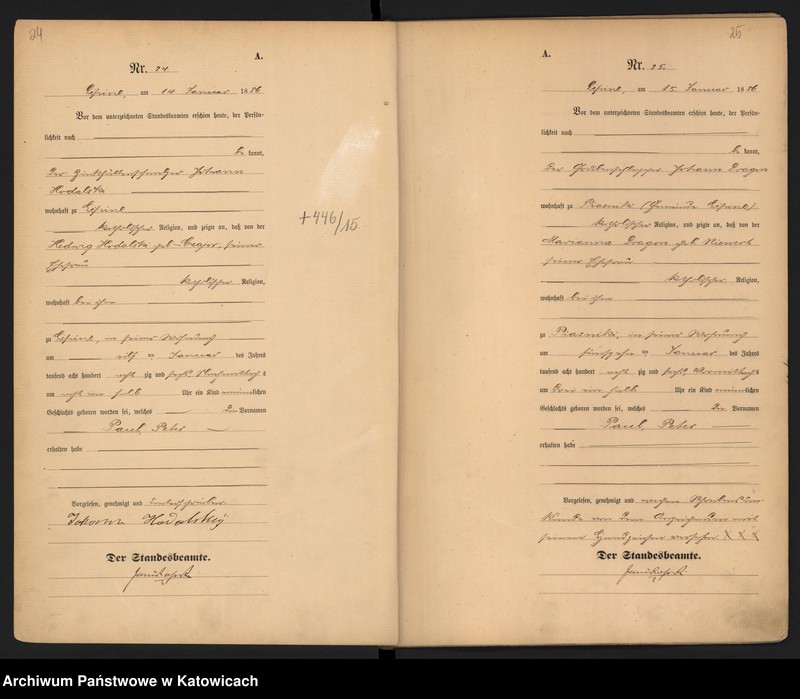 24
A.
Nr. 24
am 14 Januar 1886.
Vor dem unterzeichneten Standesbeamten erschien heute, der Persön-
lichkeit nach
be kannt,
der Zinkhüttenschmelzer Johann
Hodalika
wohnhaft zu
katholischer Religion, und zeigte an, daß von der
Hedwig Hodalika geb. seiner
Ehefrau
katholischer Religion,
wohnhaft bei ihm
zu in seiner Wohnung
am elf ten Januar des Jahres
tausend acht hundert acht zig und sechs Nachmittags
um acht ein halb Uhr ein Kind männlichen
Geschlechts geboren worden sei, welches die Vornamen
Paul, Peter
erhalten habe
Vorgelesen, genehmigt und unterschrieben.
Der Standesbeamte.
+446/15
25
A.
Nr. 25.
am 15. Januar 1886.
Vor dem unterzeichneten Standesbeamten erschien heute, der Persön-
lichkeit nach
be kannt,
der Grubenschlepper Johann Dragon
wohnhaft zu Piasniki (Gemeinde
katholischer Religion, und zeigte an, daß von der
Marianna Dragon geb.
seiner Ehefrau
katholischer Religion,
wohnhaft bei ihm
zu Piasniki, in seiner Wohnung
am fünfzehn ten Januar des Jahres
tausend acht hundert acht zig und sechs Vormittags
um drei ein halb Uhr ein Kind männlichen
Geschlechts geboren worden sei, welches die Vornamen
Paul, Peter
erhalten habe
Vorgelesen, genehmigt und wegen Schreibensun-
kunde von dem Anzeigenden mit
seinem Handzeichen versehen. X X X
Der Standesbeamte.
Archiwum Państwowe w Katowicach